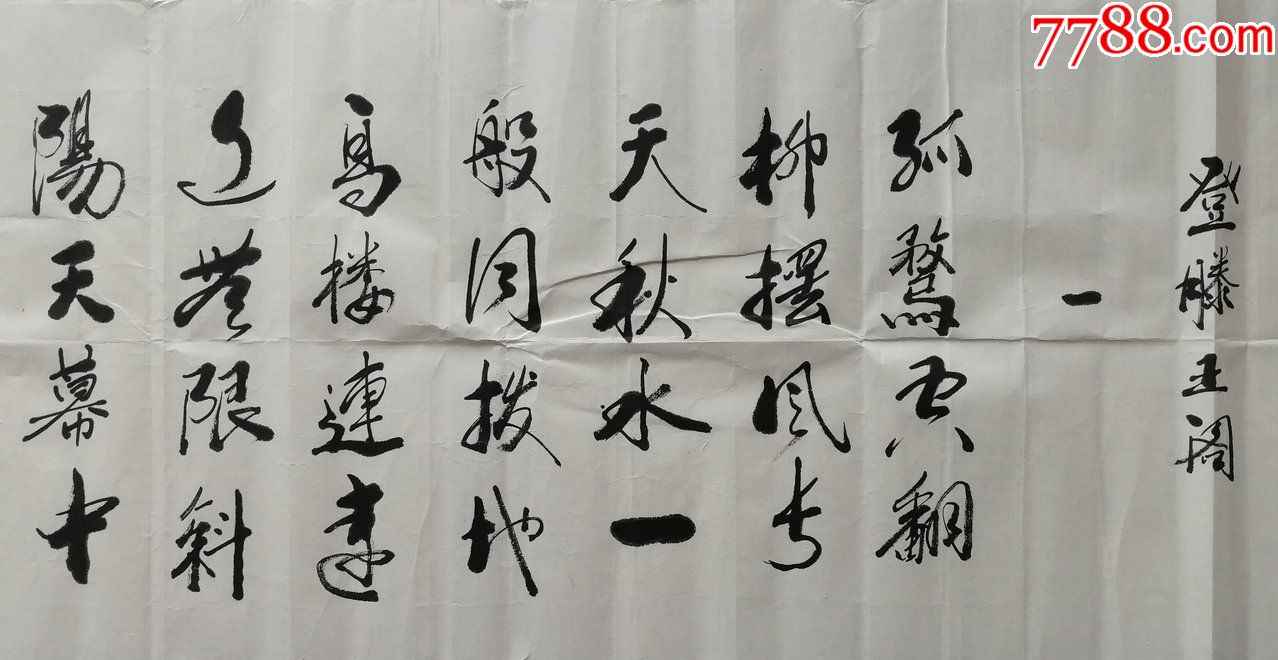 7788.com
登滕王阁
一
孤鶩空翻
柳摆风长
天秋水一
般同拨地
高楼連遠
近無限斜
陽天幕中